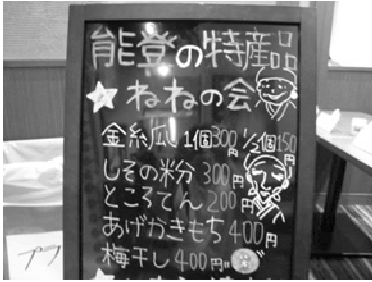 能登の特産品
★ねねの会
金糸瓜 1個300円 1/2個150円
しその粉分 300円
ところてん 200円
あげかきもち 400円
梅干し 400円